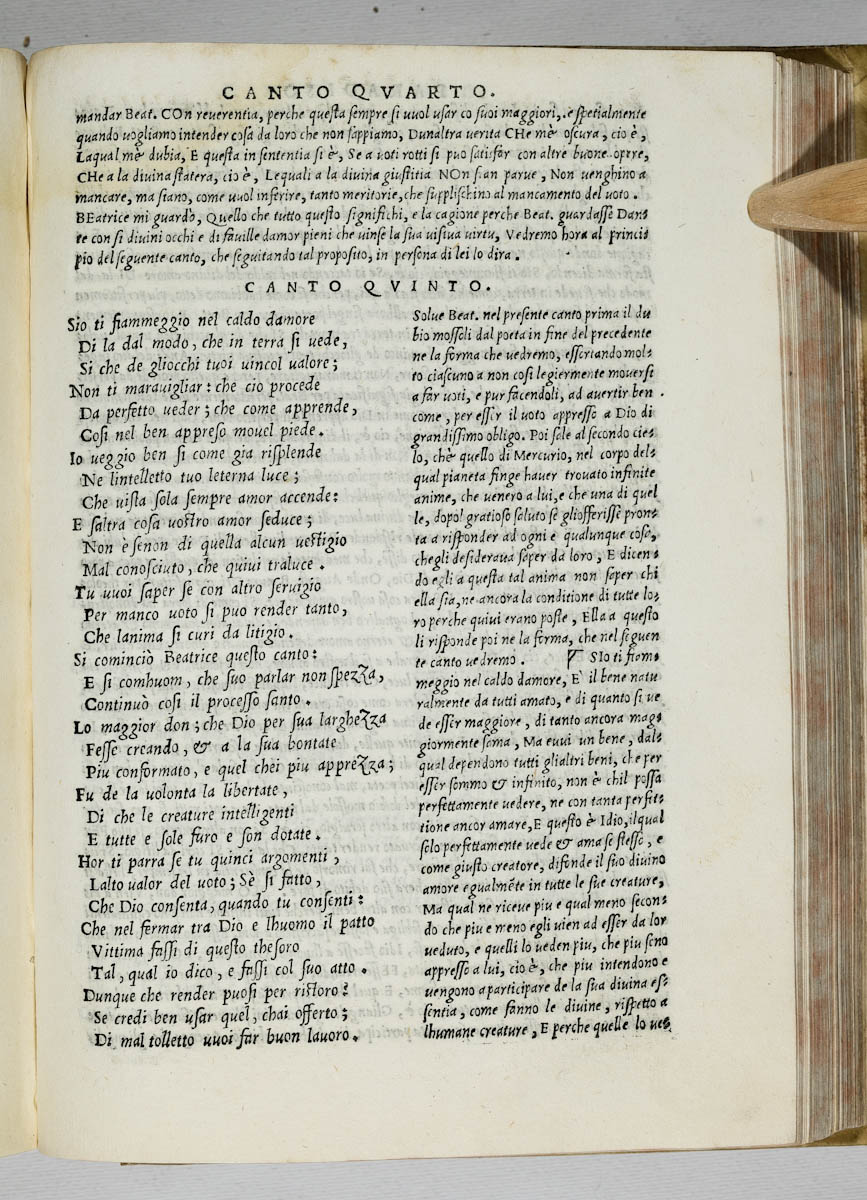 CANTO QVARTO.
mandar Beat. COn reuerentia, perche questa sempre si vuol vsar co suoi maggiori, e spetialmente
quando uogliamo intender cosa da loro che non sappiamo, Dunaltra uerita CHe mè oscura, cio è,
Laqual mè dubia, E questa in sententia si è, Se a uoti rotti si puo satisfar con altre buone opere,
CHe a la diuina statera, cio è, Lequali a la diuina giustitia NOn sian parue, Non uenghino a
mancare, ma siano, come uuol inferire, tanto meritorie, che supplischino al mancamento del uoto.
BEatrice mi guardò, Quello che tutto questo significhi, e la cagione perche Beat. guardasse Dan-
te con si diuini occhi e di fauille damor pieni che uinse la sua uisiua uirtu, Vedremo hora al princi-
pio del seguente canto, che seguitando tal proposito, in persona di lei lo dira.
CANTO QVINTO.
Sio ti fiammeggio nel caldo damore
Di la dal modo, che in terra si uede,
Si che de gliocchi tuoi uincol ualore;
Non ti marauigliar: che cio procede
Da perfetto ueder; che come apprende,
Cosi nel ben appreso mouel piede.
Io ueggio ben si come gia risplende
Ne lintelletto tuo leterna luce;
Che uista sola sempre amor accende:
E saltra cosa uostro amor seduce;
Non è senon di quella alcun uestigio
Mal conosciuto, che quiui traluce.
Tu uuoi saper se con altro seruigio
Per manco uoto si puo render tanto,
Che lanima si curi da litigio.
Si cominciò Beatrice questo canto:
E si comhuom, che suo parlar non spezza,
Continuò cosi il processo santo.
Lo maggior don; che Dio per sua larghezza
Fesse creando, & a la sua bontate
Piu conformato, e quel chei piu apprezza;
Fu de la uolonta la libertate,
Di che le creature intelligenti
E tutte e sole furo e son dotate.
Hor ti parra se tu quinci argomenti,
Lalto ualor del uoto; Sè si fatto,
Che Dio consenta, quando tu consenti:
Che nel fermar tra Dio e lhuomo il patto
Vittima fassi di questo thesoro
Tal, qual io dico, e fassi col suo atto.
Dunque che render puosi per ristoro?
Se credi ben usar quel, chai offerto;
Di mal tolletto uuoi far buon lauoro.
Solue Beat. nel presente canto prima il du
bio mossoli dal poeta in fine del precedente
ne la forma che uedremo, essortando mol-
to ciascuno a non cosi legiermente mouersi
a far uoti, e pur facendoli, ad auertir ben
come, per esser il uoto appresso a Dio di
grandissimo obligo. Poi sale al secondo cie-
lo, chè quello di Mercurio, nel corpo del-
qual pianeta finge hauer trouato infinite
anime, che uenero a lui, e che una di quel
le, dopo l gratioso saluto se gliofferisse pron-
ta a risponder ad ogni e qualunque cosa,
chegli desideraua saper da loro, E dicen-
do egli a questa tal anima non saper chi
ella sia, ne ancora la conditione di tutte lo-
ro perche quiui erano poste, Ella a questo
li risponde poi ne la forma, che nel seguen
te canto uedremo. SIo ti fiam-
meggio nel caldo damore, E' il bene natu
ralmente da tutti amato, e di quanto si ue
de esser maggiore, di tanto ancora mag-
giormente sama, Ma euui un bene, dal-
qual dependono tutti glialtri beni, che per
esser sommo & infinito, non è chil possa
perfettamente uedere, ne con tanta perfet-
tione ancor amare, E questo è Idio, ilqual
solo perfettamente uede & ama se stesso, e
come giusto creatore, difonde il suo diuino
amore egualmẽte in tutte le sue creature,
Ma qual ne riceue piu e qual meno secon-
do che piu e meno egli uien ad esser da lor
ueduto, e quelli lo ueden piu, che piu seno
appresso a lui, cio è, che piu intendono e
uengono a participare de la sua diuina es-
sentia, come fanno le diuine, rispetto a
lhumane creature, E perche quelle lo ue-